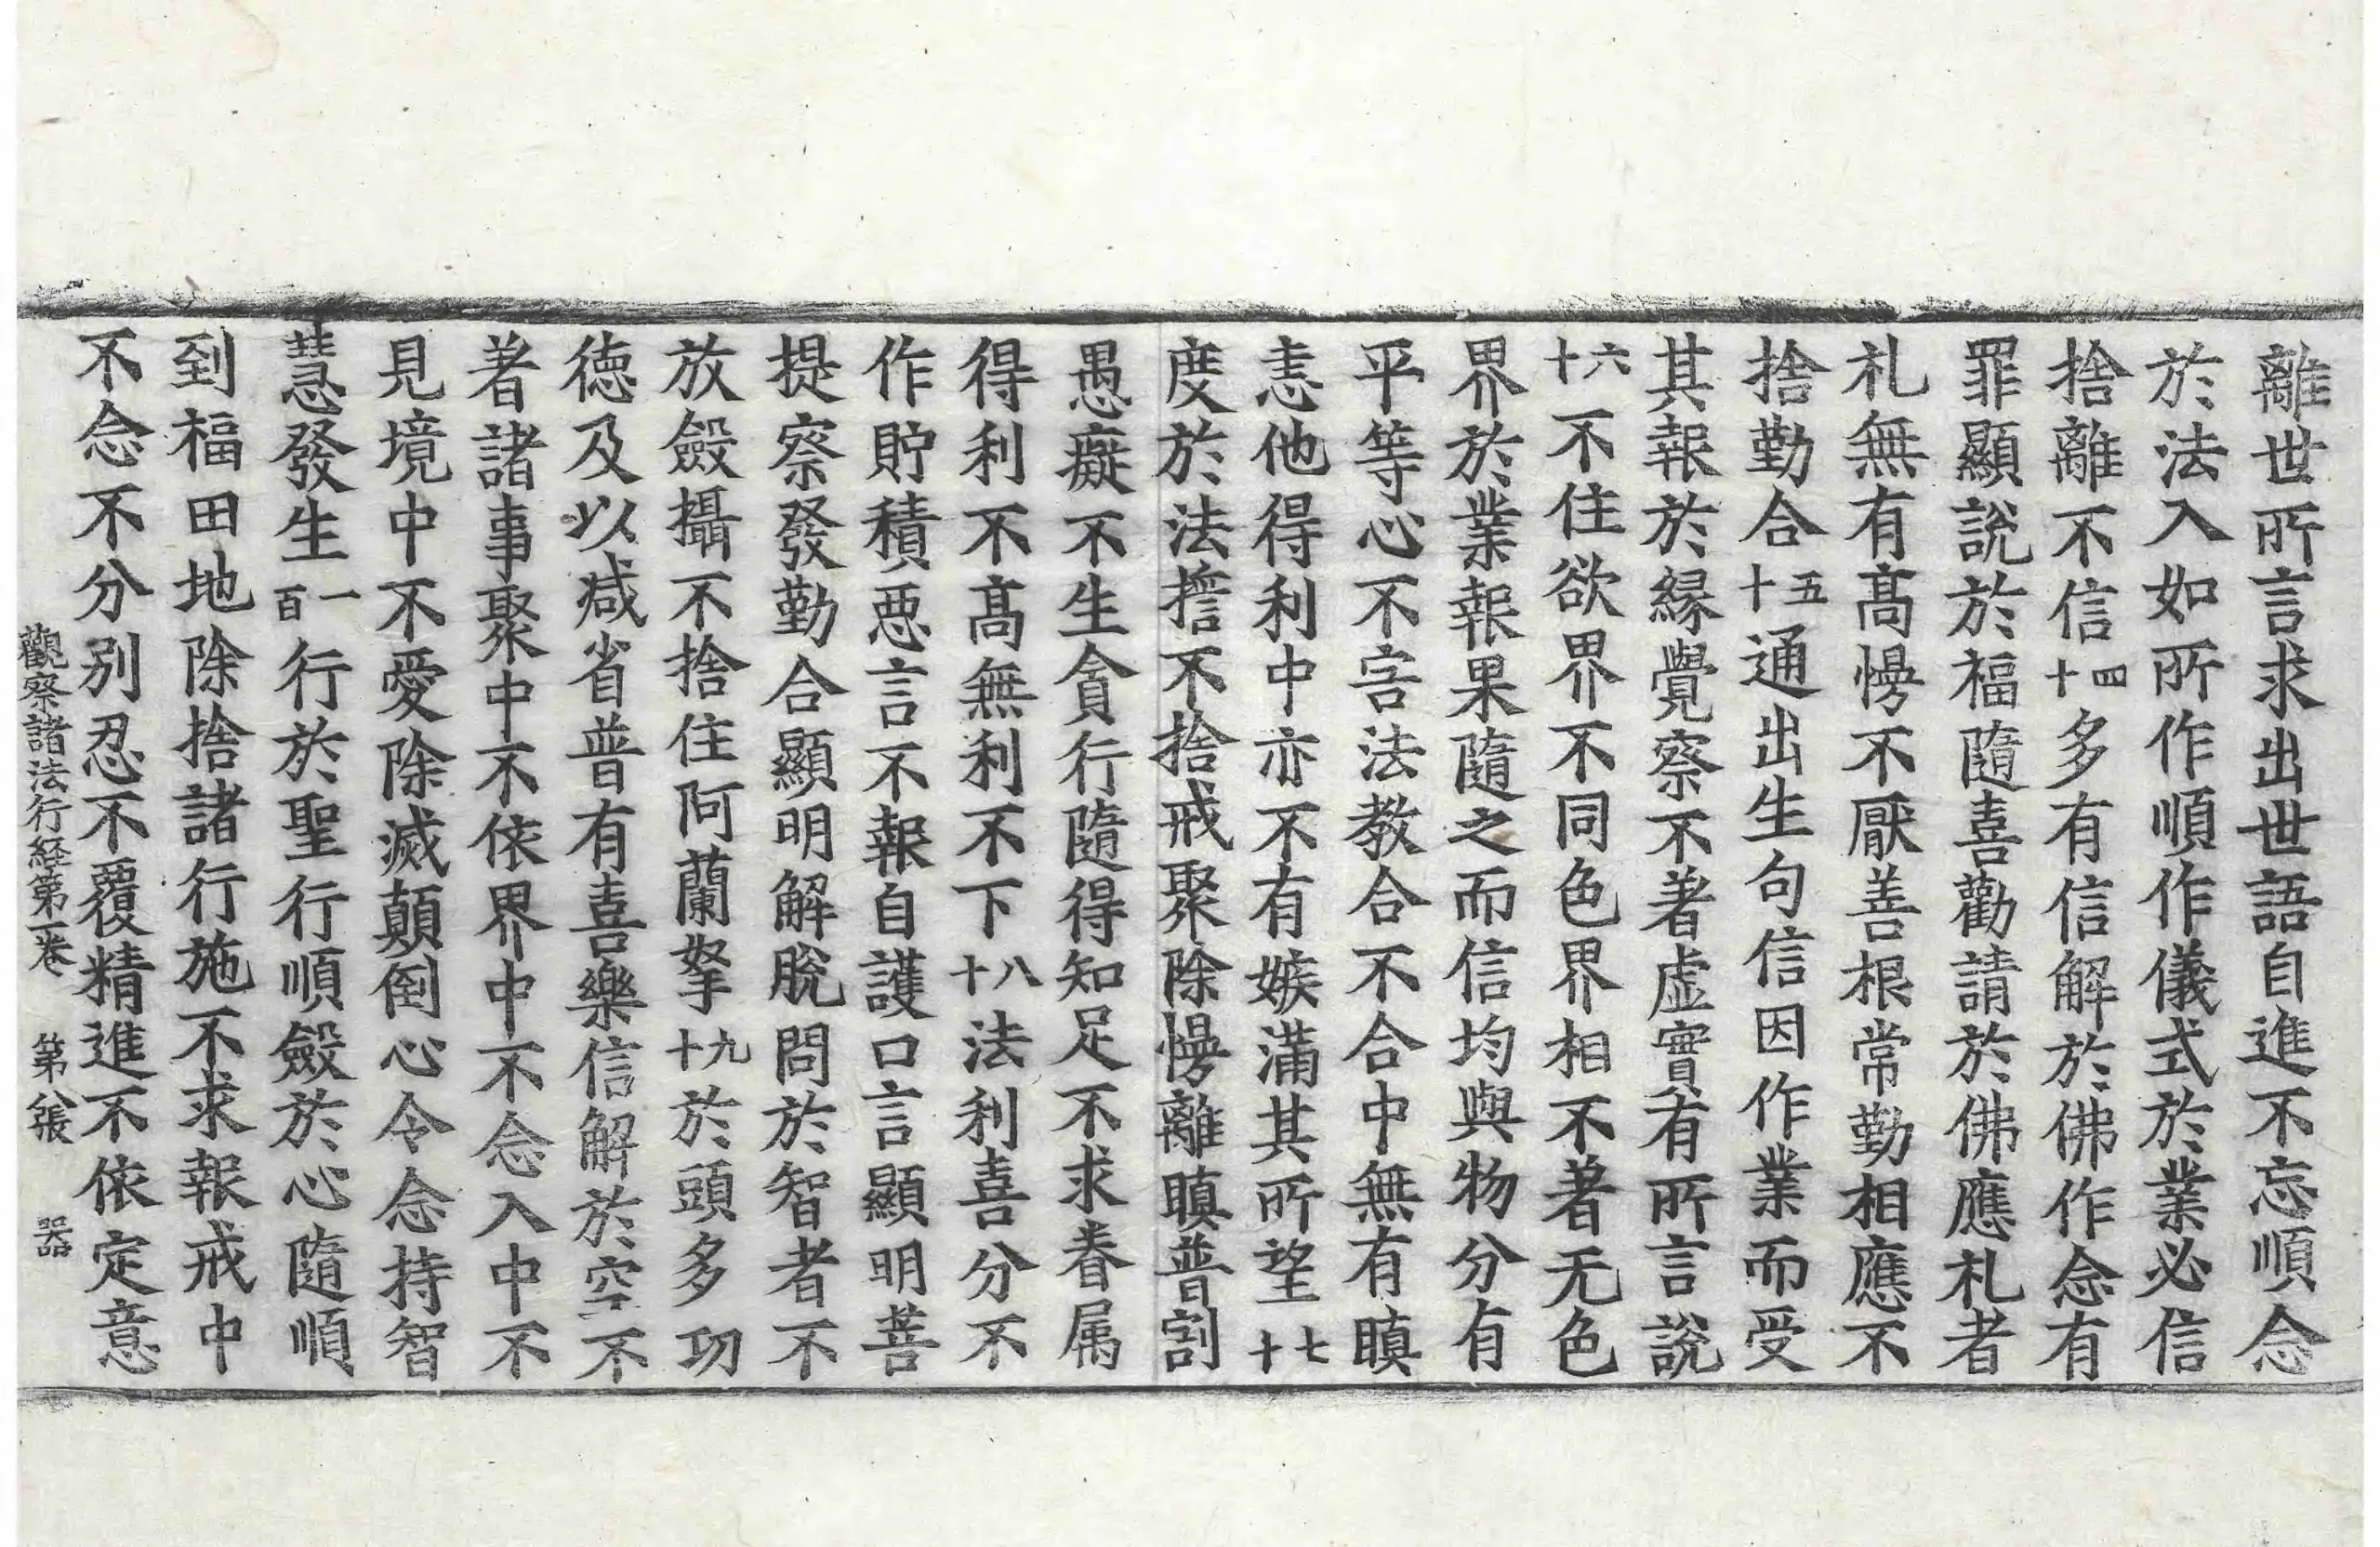 離世所言求出世語自進不忘順念
於法入如所作順作儀式於業必信
捨離不信十四多有信解於佛作念有
罪顯說於福隨喜勸請於佛應礼者
礼無有髙慢不厭善根常勤相應不
捨勤合十五通出生句信因作業而受
其報於縁覺察不著虛實有所言說
十六不住欲界不同色界相不著无色
界於業報果隨之而信均與物分有
平等心不害法教合不合中無有瞋
恚他得利中亦不有嫉滿其所望十七
度於法擔不捨戒聚除慢離瞋普割
愚癡不生貪行隨得知足不求眷属
得利不髙無利不下十八法利喜分不
作貯積惡言不報自護口言顯明菩
提察發勤合顯明解脫問於智者不
放斂攝不捨住阿蘭拏十九於頭多功
德及以减省普有喜樂信解於空不
著諸事聚中不依界中不念入中不
見境中不愛除滅顛倒心令念持智
慧發生一百行於聖行順斂於心隨順
到福田地除捨諸行施不求報戒中
不念不分别忍不覆精進不依定意
觀察諸法行経第一卷 第八張 器